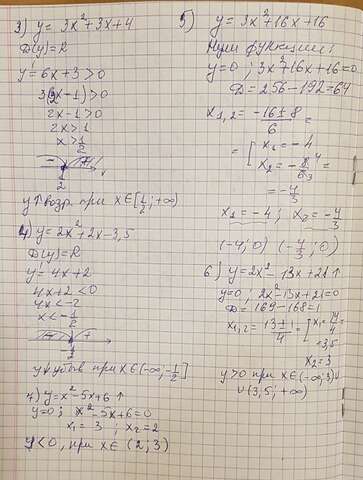 3) y = 3x²+3x+4
D(y)=R
y=6x+3>0
3(2x-1)>0
2x-1>0
2x>1
x>1/2
- + x
1/2
y↑ возр при x∈[1/2;+∞)
4) y=2x²+2x-3,5
D(y)=R
y=4x+2
4x+2<0
4x<-2
x<-1/2
- +
y↓ убыв при x∈(-∞;-1/2]
7) y=x²-5x+6 ↑
y=0; x²-5x+6=0
x₁=3; x₂=2
y<0, при x∈(2;3)
5) y=3x²+16x+16
Нули функции:
y=0; 3x²+16x+16=0
D=256-192=64
x₁,₂=(-16±8)/6=
=[x₁=-4
x₂=-8/6 4/3
=-4/3
x₁=-4; x₂=-4/3
(-4;0) (-4/3;0)
6) y=2x²-13x+21 ↑
y=0; 2x²-13x+21=0
D=169-168=1
x₁,₂=(13±1)/4=[x₁=14/4
=3,5
x₂=3
y>0 при x∈(-∞;3)∪
∪(3,5;+∞)